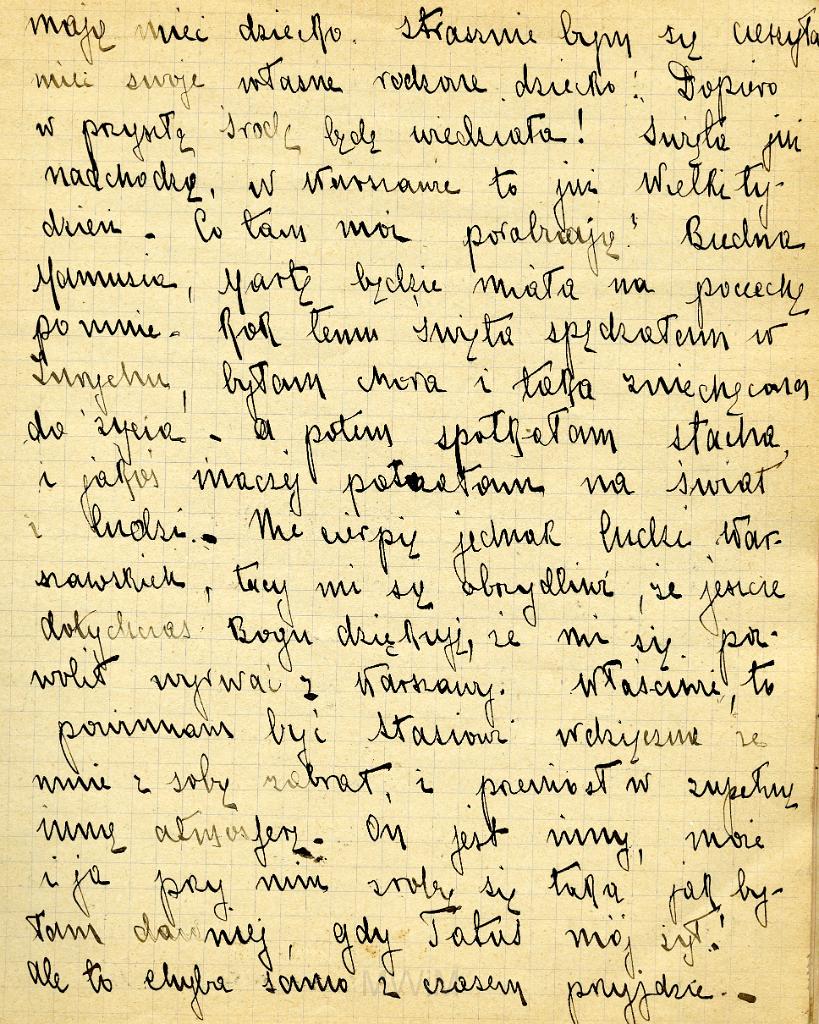 mają mieć dziecko. Strasznie bym się cieszyła
mieć swoje własne rodzone dziecko! Dopiero
w przyszłą środę będę wiedziała! Święta już
nadchodzą, w Warszawie to już Wielki ty-
dzień - Co tam moi porabiają? Biedna
Mamusia, Martę będzie miała na pociechę
po mnie - Rok temu święta spędzałam w
Zurychu, byłam chora i taka zniechęcona
do życia - a potem spotkałam Stacha,
i jakoś inaczej patrzałam na świat
i ludzi. - Nie cierpię jednak ludzi War-
szawskich, tacy mi są obrzydliwi, że jeszcze
dotychczas Bogu dziękuję, że mi się poz-
wolił wyrwać z Warszawy. Właściwie, to
powinnam być Stasiowi wdzięczna że
mnie z sobą zabrał, i przeniósł w zupełnie
inną atmosferę. - On jest inny, może
i ja przy nim zrobię się taka jak by-
łam dawniej, gdy Tatuś mój żył!
ale to chyba samo z czasem przyjdzie. -
MWM